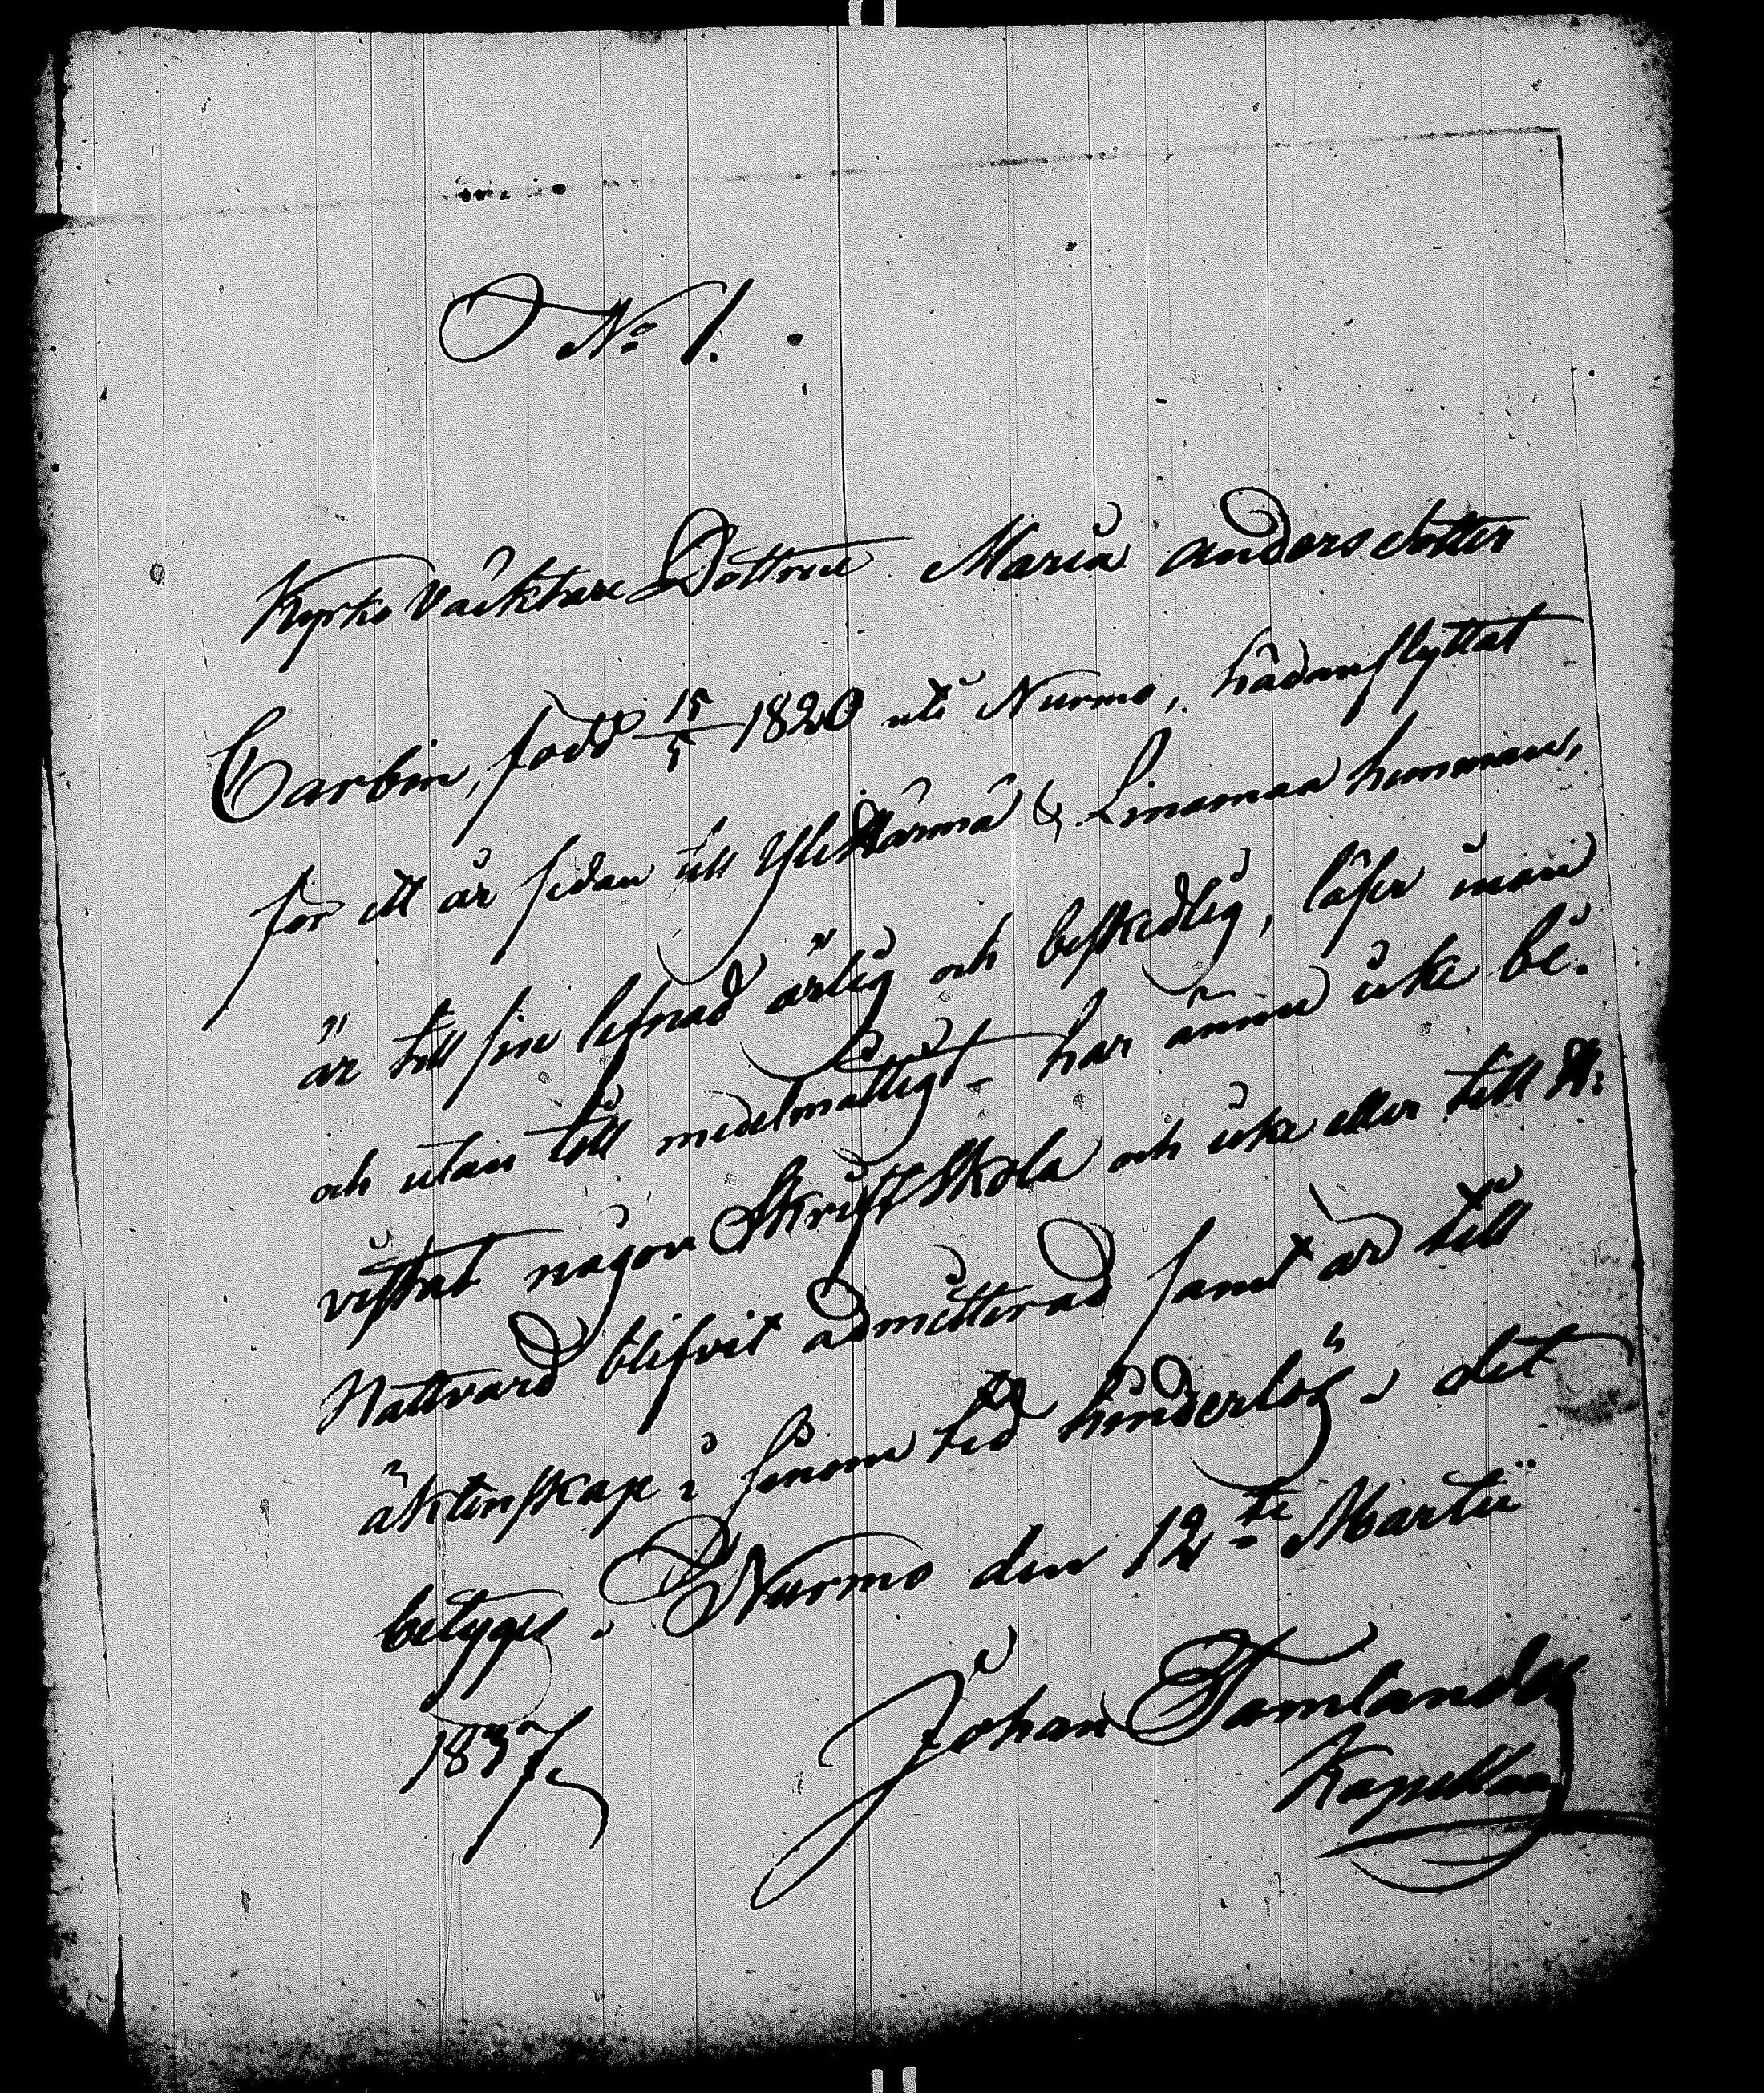 No 1.
Kyrko väcktare Dottren Maria anders dotter
Carbin, född 15/5 1820 uti Nurmo, hädanflyttat
för ett år sedan till Ylihärmä & Linamaa hemman,
är till sin lefnad ärlig och beskedlig, läser innan
och utan till medelmåttigt - har ännu icke be-
vistat någon Skriftskola och icke eller till H:
Nattvard blifvit admitterad samt är till
äktenskap i sinom tid hinderlös, det
betyges. Nurmo den 12te Martii
1837. Johan Tamlander
Kapellan